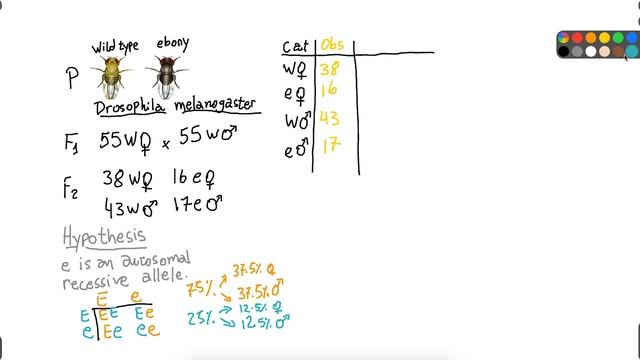 wild type ebony
P
Drosophila melanogaster
F1 55 w♀ x 55 w♂
F2 38 w♀ 16 e♀
43 w♂ 17 e♂
Hypothesis
e is an autosomal
recessive allele.
E e
E EE Ee
e Ee ee
75% 37.5% ♀
37.5% ♂
25% 12.5% ♀
12.5% ♂
Cat Obs
w♀ 38
e♀ 16
w♂ 43
e♂ 17